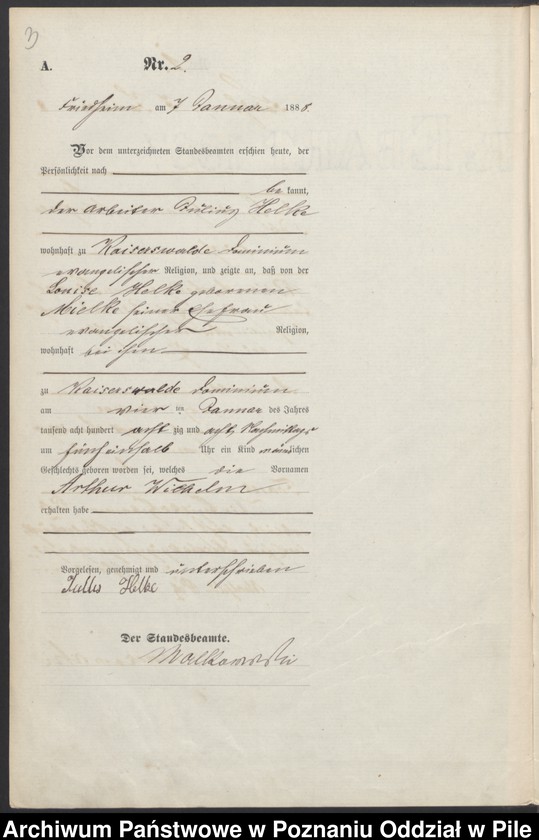 3
A. Nr. 2.
Friedheim am 7 Januar 1888.
Vor dem unterzeichneten Standesbeamten erschien heute, der
Persönlichkeit nach
be kannt,
der Arbeiter Julius Helke
wohnhaft zu Kaiserswalde Dominium
evangelischer Religion, und zeigte an, daß von der
Louise Helke geborenen
Mielke seiner Ehefrau
evangelischer Religion,
wohnhaft bei ihm
zu Kaiserswalde Dominium
am vier ten Januar des Jahres
tausend acht hundert acht zig und acht Nachmittags
um fünf einhalb Uhr ein Kind männlichen
Geschlechts geboren worden sei, welches die Vornamen
Arthur Wilhelm
erhalten habe
Vorgelesen, genehmigt und unterschrieben
Julius Helke
Der Standesbeamte.
Malkowski
Archiwum Państwowe w Poznaniu Oddział w Pile